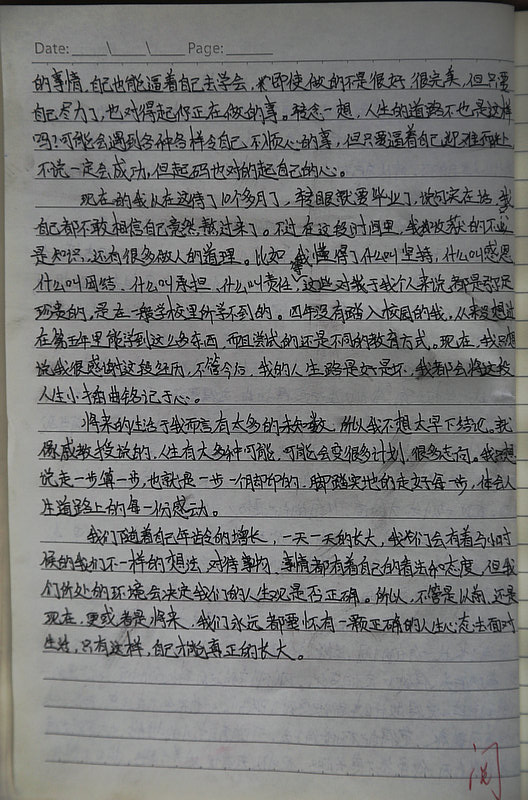 Date: _____\_____\_____ Page: ______
的事情,自己也能逼着自己去学会,即使做的不是很好,很完美,但只要
自己尽力了,也对得起你正在做的事。转念一想,人生的道路不也是这样
吗?可能会遇到各种各样令自己不顺心的事,但只要逼着自己迎难而上,
不说一定会成功,但起码也对的起自己的心。
现在的我从在这待了10个多月了,转眼就要毕业了,说句实在话,我
自己都不敢相信自己竟然熬过来了。不过在这段时间里,我收获的不止
是知识,还有很多做人的道理。比如,我懂得了什么叫坚持,什么叫感恩
什么叫团结,什么叫承担,什么叫责任等,这些对于我个人来说都是弥足
珍贵的,是在一般学校里所学不到的。四年没有踏入校园的我,从来没想过
在第五年里能学到这么多东西,而且尝试的还是不同的教育方式。现在,我只想
说我很感谢这段经历,不管今后,我的人生路是好是坏,我都会将这段
人生小插曲铭记于心。
将来的生活于我而言有太多的未知数,所以我不想太早下结论,就
像戚教授说的,人生有太多种可能,可能会变很多计划,很多志向。我只想
说走一步算一步,也就是一步一个脚印的,脚踏实地的走好每一步,体会人
生道路上的每一份感动。
我们随着自己年龄的增长,一天一天的长大,我们会有着与小时
候的我们不一样的想法,对待事物,事情都有着自己的看法和态度,但我
们所处的环境会决定我们的人生观是否正确。所以,不管是以前,还是
现在,更或者是将来,我们永远都要怀有一颗正确的人生心态去面对
生活,只有这样,自己才能真正的长大。
阅